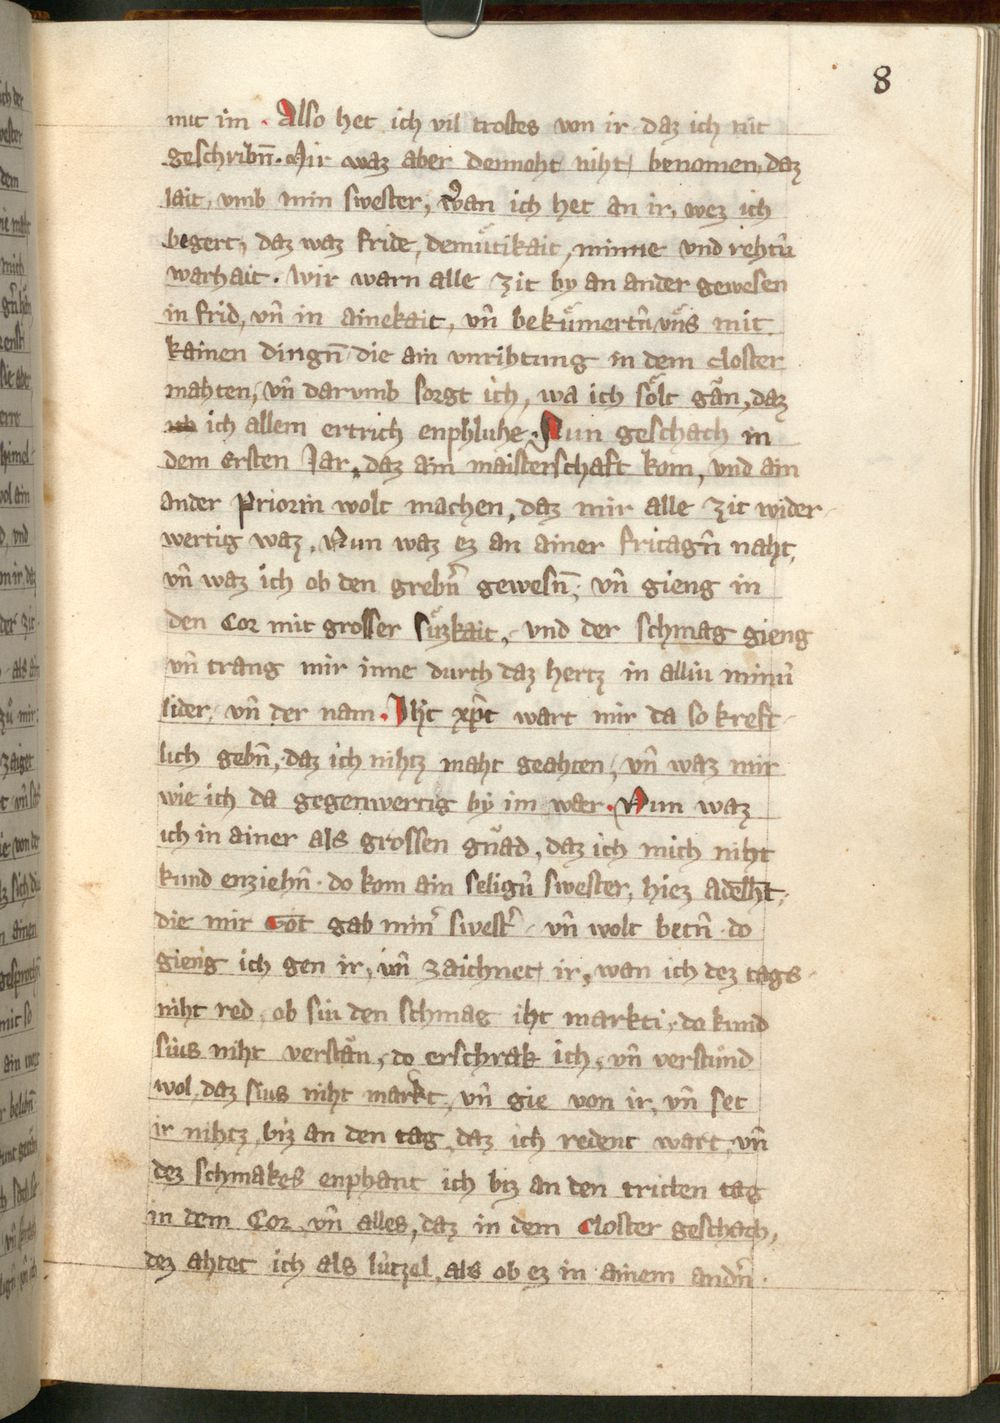 8
mit im. Also het ich vil trostes von ir daz ich nit
geschribn̄. Mir waz aber dennoht niht benomen, daz
lait, vmb min swester, wan ich het an ir, wez ich
begert, daz waz fride, demuͤtikait, minne vnd rehtiu
warhait. Wir warn alle zit by an ander gewesen
in frid, vn̄ in ainekait, vn̄ bekuͤmertn̄ vns mit
kainen dingn̄ die ain vnrihtung in dem closter
mahten, vn̄ darvmb sorgt ich, wa ich soͤlt gān, daz
ich allem ertrich enphluhe. Nun geschach in
dem ersten Jar, daz ain maisterschaft kom, vnd ain
ander Priorin wolt machen, daz mir alle zit wider
wertig waz. Nun waz ez an ainer fritagn̄ naht,
vn̄ waz ich ob den grebn̄ gewesn̄, vn̄ gieng in
den Cor mit grosser suͤzkait, vnd der schmag gieng
vn̄ trang mir inne durch daz hertz in alliu miniu
lider, vn̄ der nam. Ihc xp̄c wart mir da so kreft
lich gebn̄, daz ich nihtz maht geahten, vn̄ waz mir
wie ich da gegenwertig by im wer. Nun waz
ich in ainer als grossen gnād, daz ich mich niht
kund enziehn̄. do kom ain seligiu swester, hiez adelht,
die mir Got gab min̄ swest̄ vn̄ wolt betn̄. do
gieng ich gen ir, vn̄ zaichnet ir, wan ich dez tags
niht red, ob siu den schmag iht markti, do kund
sius niht verstān, do erschrak ich, vn̄ verstuͦnd
wol, daz sius niht markt, vn̄ gie von ir, vn̄ set
ir nihtz, biz an den tag, daz ich redent wart, vn̄
dez schmakes enphant ich biz an den tritten tag
in dem Cor, vn̄ alles, daz in dem Closter geschach,
dez ahtet ich als lützel, als ob ez in ainem andn̄.